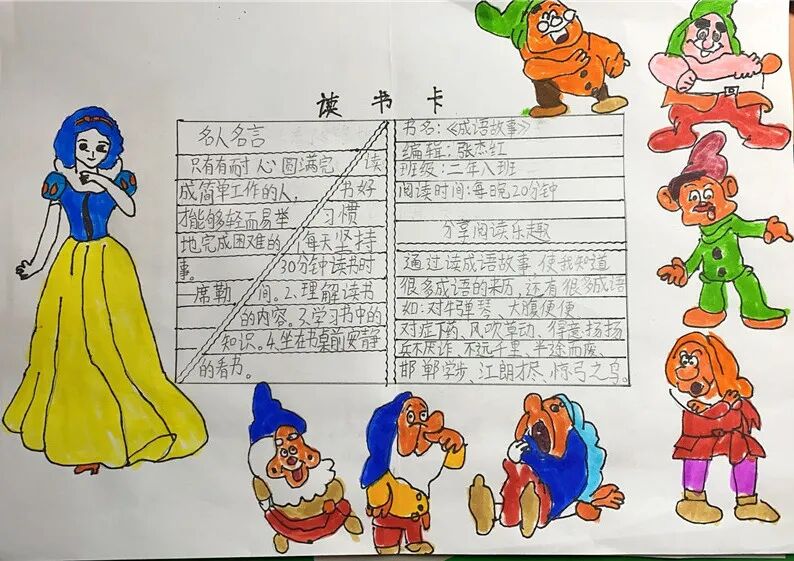 读书卡
名人名言
只有有耐心圆满完
成简单工作的人,
才能够轻而易举
地完成困难的
事。
席勒
读
书好
习惯
1每天坚持
30分钟读书时
间。2、理解读书
的内容。3、学习书中的
知识。4、坐在书桌前安静
的看书。
书名:《成语故事》
编辑:张杰红
班级:二年八班
阅读时间:每晚20分钟
分享阅读乐趣
通过读成语故事,使我知道
很多成语的来历,还有很多成语
如:对牛弹琴、大腹便便
对症下药、风吹草动、得意扬扬
兵不厌诈、不远千里、半途而废、
邯郸学步、江朗才尽、惊弓之鸟。